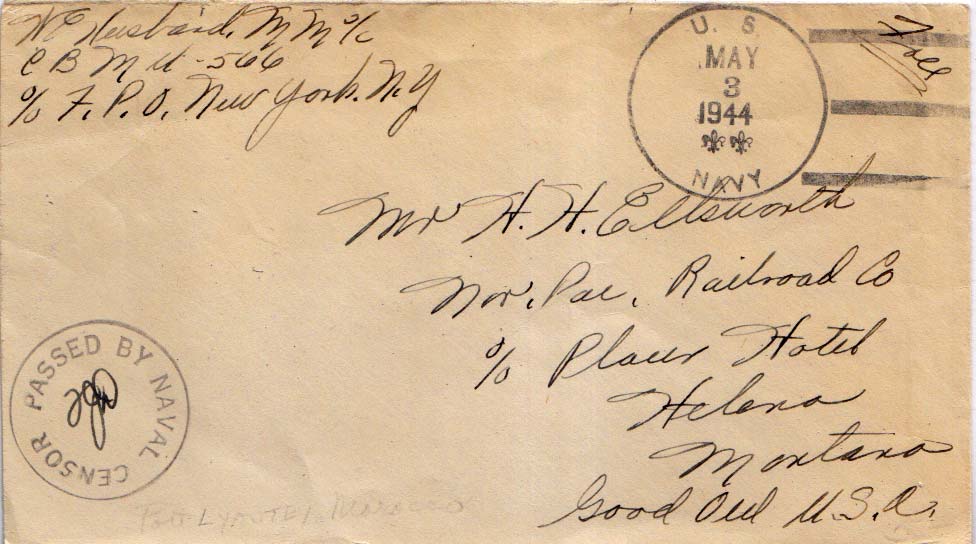 W E Husband, M M 1/c
C B M U - 566
c/o F. P. O. New York. N. Y
U. S.
MAY
3
1944
NAVY
Free
Mr H. H. Ellsworth
Nor. Pac. Railroad Co
c/o Placer Hotel
Helena
Montana
Good Old U. S. A.
PASSED BY NAVAL CENSOR
Port LYAUTEY, Morocco